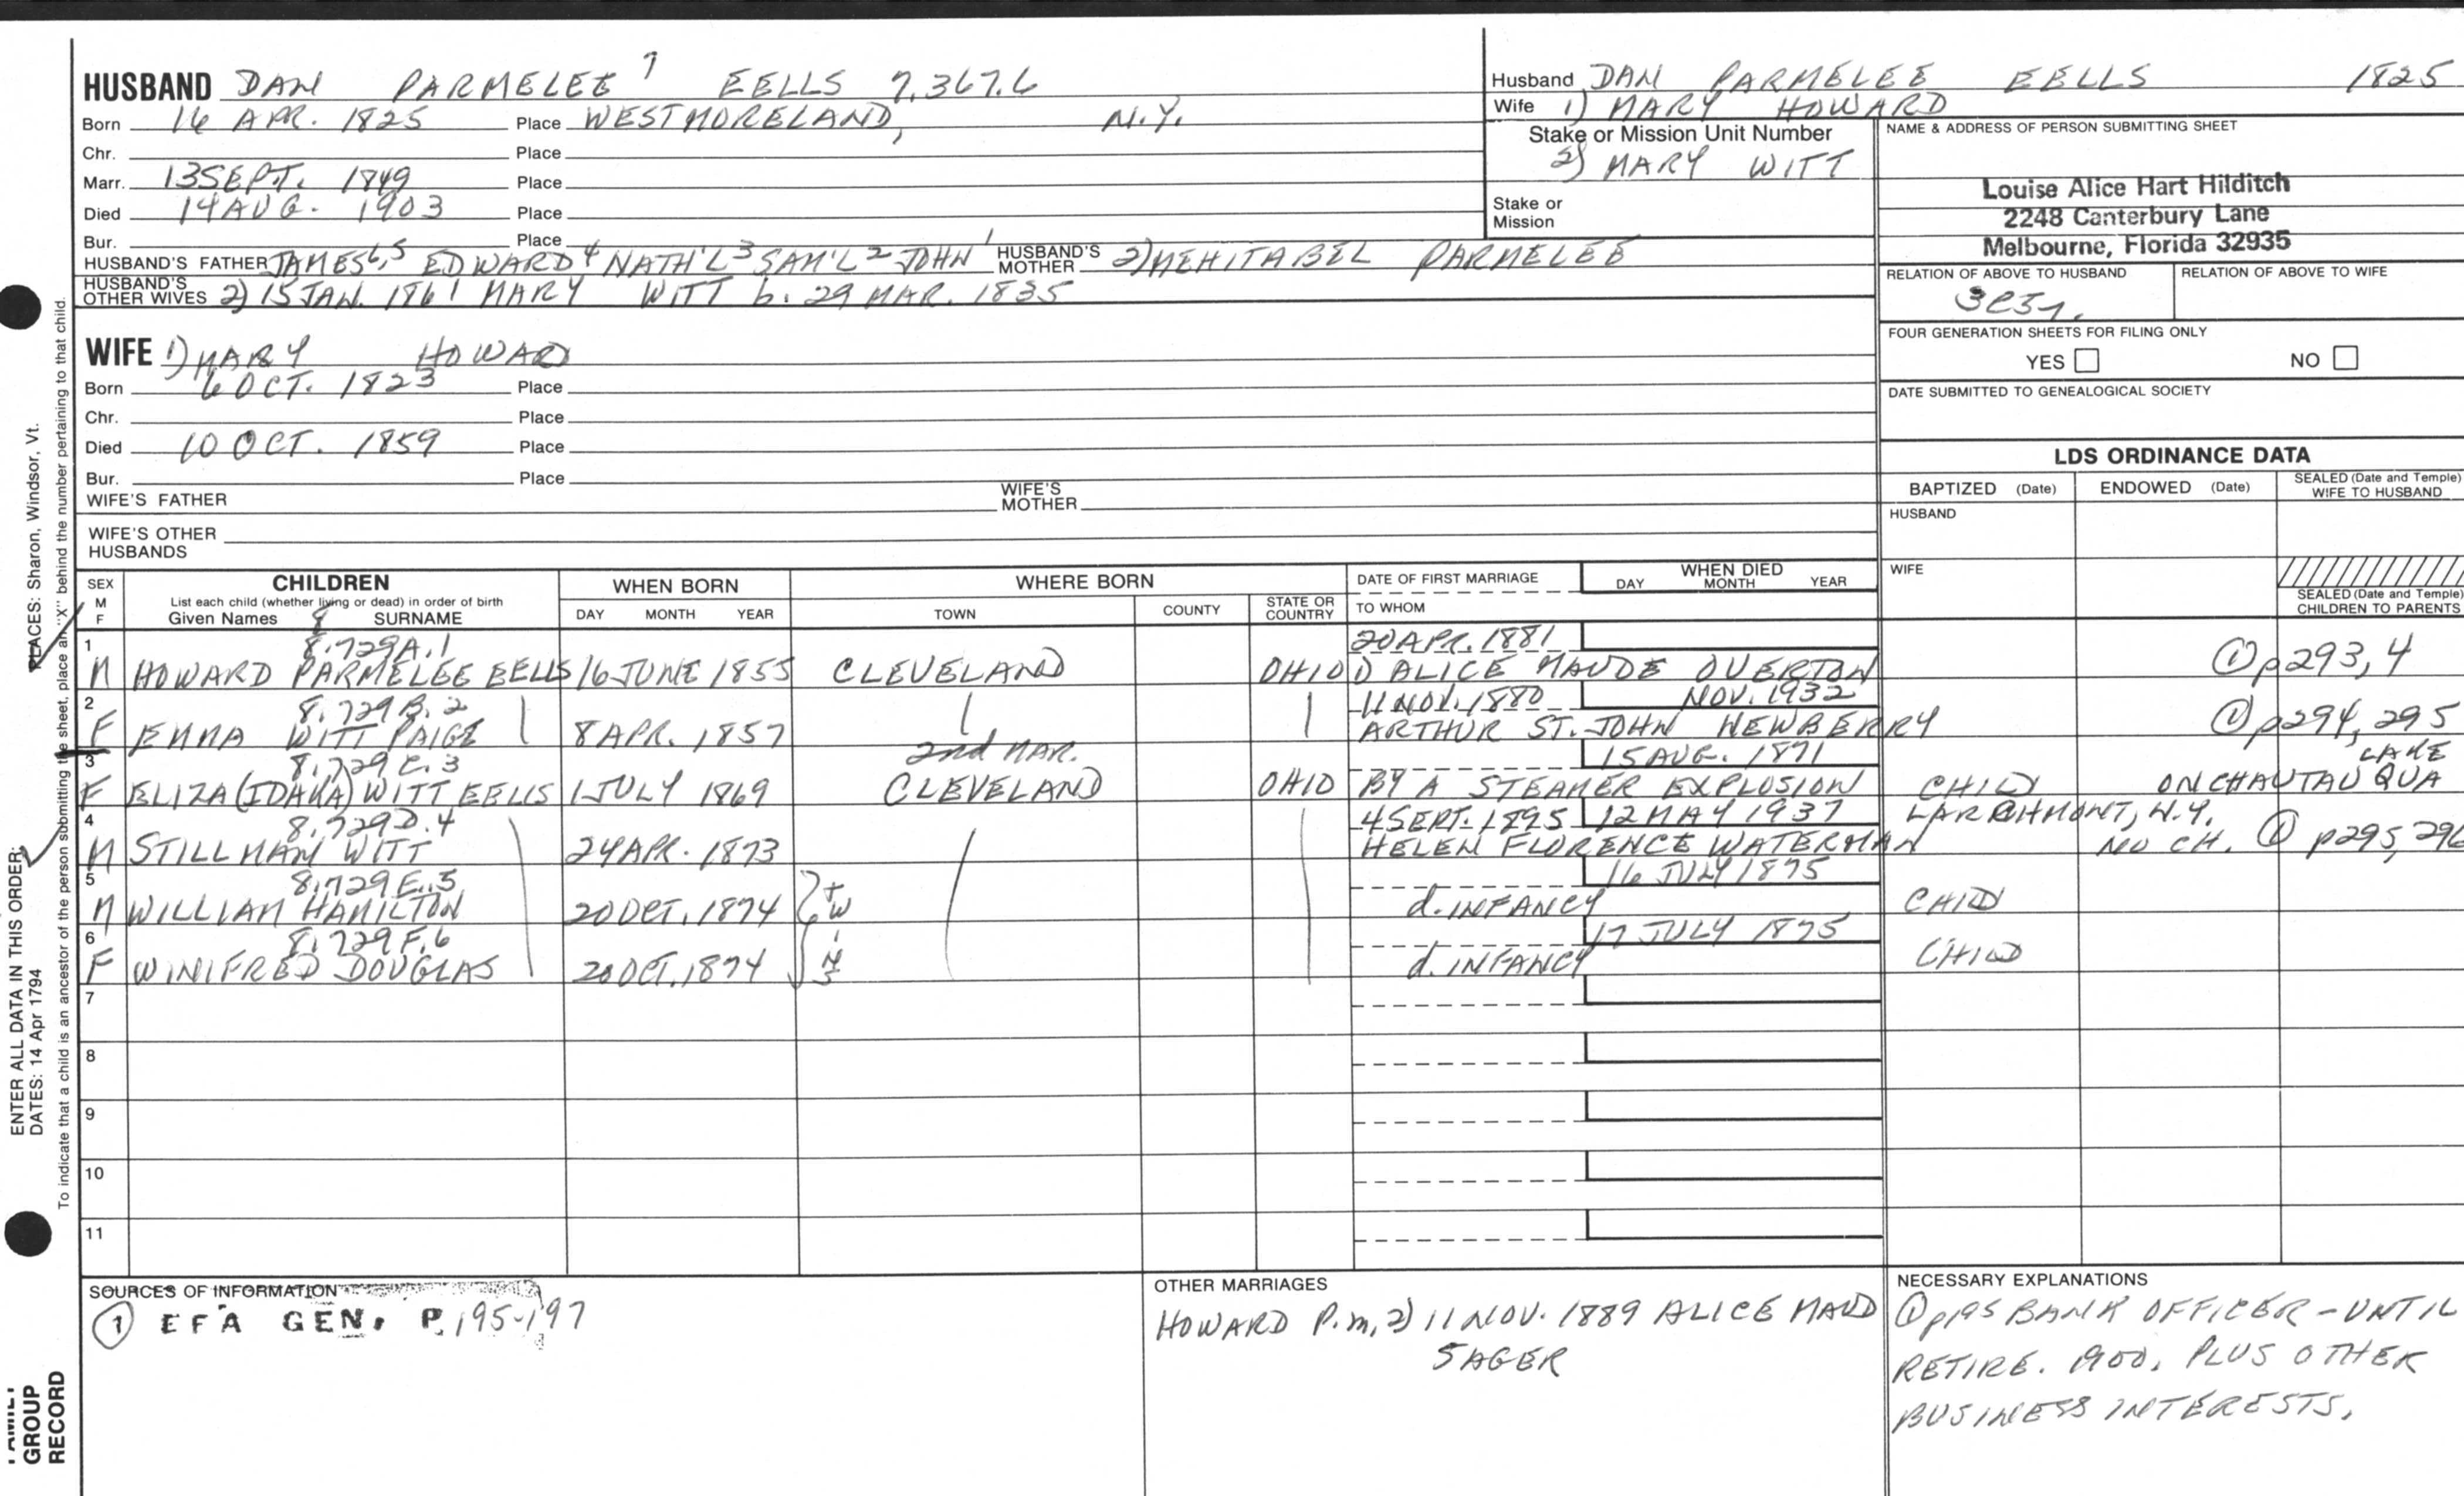 HUSBAND DAN PARMELEE 7 EELLS 7.367.6
Born 16 APR. 1825 Place WESTMORELAND, N.Y.
Chr. Place
Marr. 13 SEPT. 1849 Place
Died 14 AUG. 1903 Place
Bur. Place
HUSBAND'S FATHER JAMES 6,5 EDWARD 4 NATH'L 3 SAM'L 2 JOHN 1 HUSBAND'S MOTHER 2) MEHITABEL PARMELEE
HUSBAND'S OTHER WIVES 2) 15 JAN. 1861 MARY WITT b. 29 MAR. 1835
WIFE 1) MARY HOWARD
Born 6 OCT. 1823 Place
Chr. Place
Died 10 OCT. 1859 Place
Bur. Place
WIFE'S FATHER WIFE'S MOTHER
WIFE'S OTHER HUSBANDS
Husband DAN PARMELEE EELLS 1825
Wife 1) MARY HOWARD
Stake or Mission Unit Number
2) MARY WITT
Stake or Mission
NAME & ADDRESS OF PERSON SUBMITTING SHEET
Louise Alice Hart Hilditch
2248 Canterbury Lane
Melbourne, Florida 32935
RELATION OF ABOVE TO HUSBAND RELATION OF ABOVE TO WIFE
FOUR GENERATION SHEETS FOR FILING ONLY
YES NO
DATE SUBMITTED TO GENEALOGICAL SOCIETY
LDS ORDINANCE DATA
BAPTIZED (Date) ENDOWED (Date) SEALED (Date and Temple) WIFE TO HUSBAND
HUSBAND
WIFE
SEALED (Date and Temple) CHILDREN TO PARENTS
SEX M F
CHILDREN
List each child (whether living or dead) in order of birth
Given Names 8 SURNAME
WHEN BORN
DAY MONTH YEAR
WHERE BORN
TOWN COUNTY STATE OR COUNTRY
DATE OF FIRST MARRIAGE
TO WHOM
WHEN DIED
DAY MONTH YEAR
1 8.729A.1 20 APR. 1881
M HOWARD PARMELEE EELLS 16 JUNE 1855 CLEVELAND OHIO 1) ALICE MAUDE OVERTON ① p293,4
2 8.729B.2 11 NOV. 1880 NOV. 1932
F EMMA WITT PAIGE 8 APR. 1857 ARTHUR ST. JOHN NEWBERRY ① p294, 295
2nd MAR.
3 8.729C.3 15 AUG. 1871 LAKE
F ELIZA (IDAKA) WITT EELLS 1 JULY 1869 CLEVELAND OHIO BY A STEAMER EXPLOSION CHILD ON CHAUTAUQUA
4 8.729D.4 4 SEPT. 1895 12 MAY 1937 LARCHMONT, N.Y.
M STILLMAN WITT 24 APR. 1873 HELEN FLORENCE WATERMAN NO CH. ① p295, 296
5 8.729E.5 16 JULY 1875
M WILLIAM HAMILTON 20 OCT. 1874 TWINS d. INFANCY CHILD
6 8.729F.6 17 JULY 1875
F WINIFRED DOUGLAS 20 OCT. 1874 d. INFANCY CHILD
7
8
9
10
11
SOURCES OF INFORMATION
① EFA GEN. P. 195-197
OTHER MARRIAGES
HOWARD P. m, 2) 11 NOV. 1889 ALICE MAUD
SAGER
NECESSARY EXPLANATIONS
① p195 BANK OFFICER - UNTIL
RETIRE. 1900, PLUS OTHER
BUSINESS INTERESTS.
ENTER ALL DATA IN THIS ORDER:
DATES: 14 Apr 1794
PLACES: Sharon, Windsor, Vt.
To indicate that a child is an ancestor of the person submitting the sheet, place an "X" behind the number pertaining to that child.
FAMILY
GROUP
RECORD